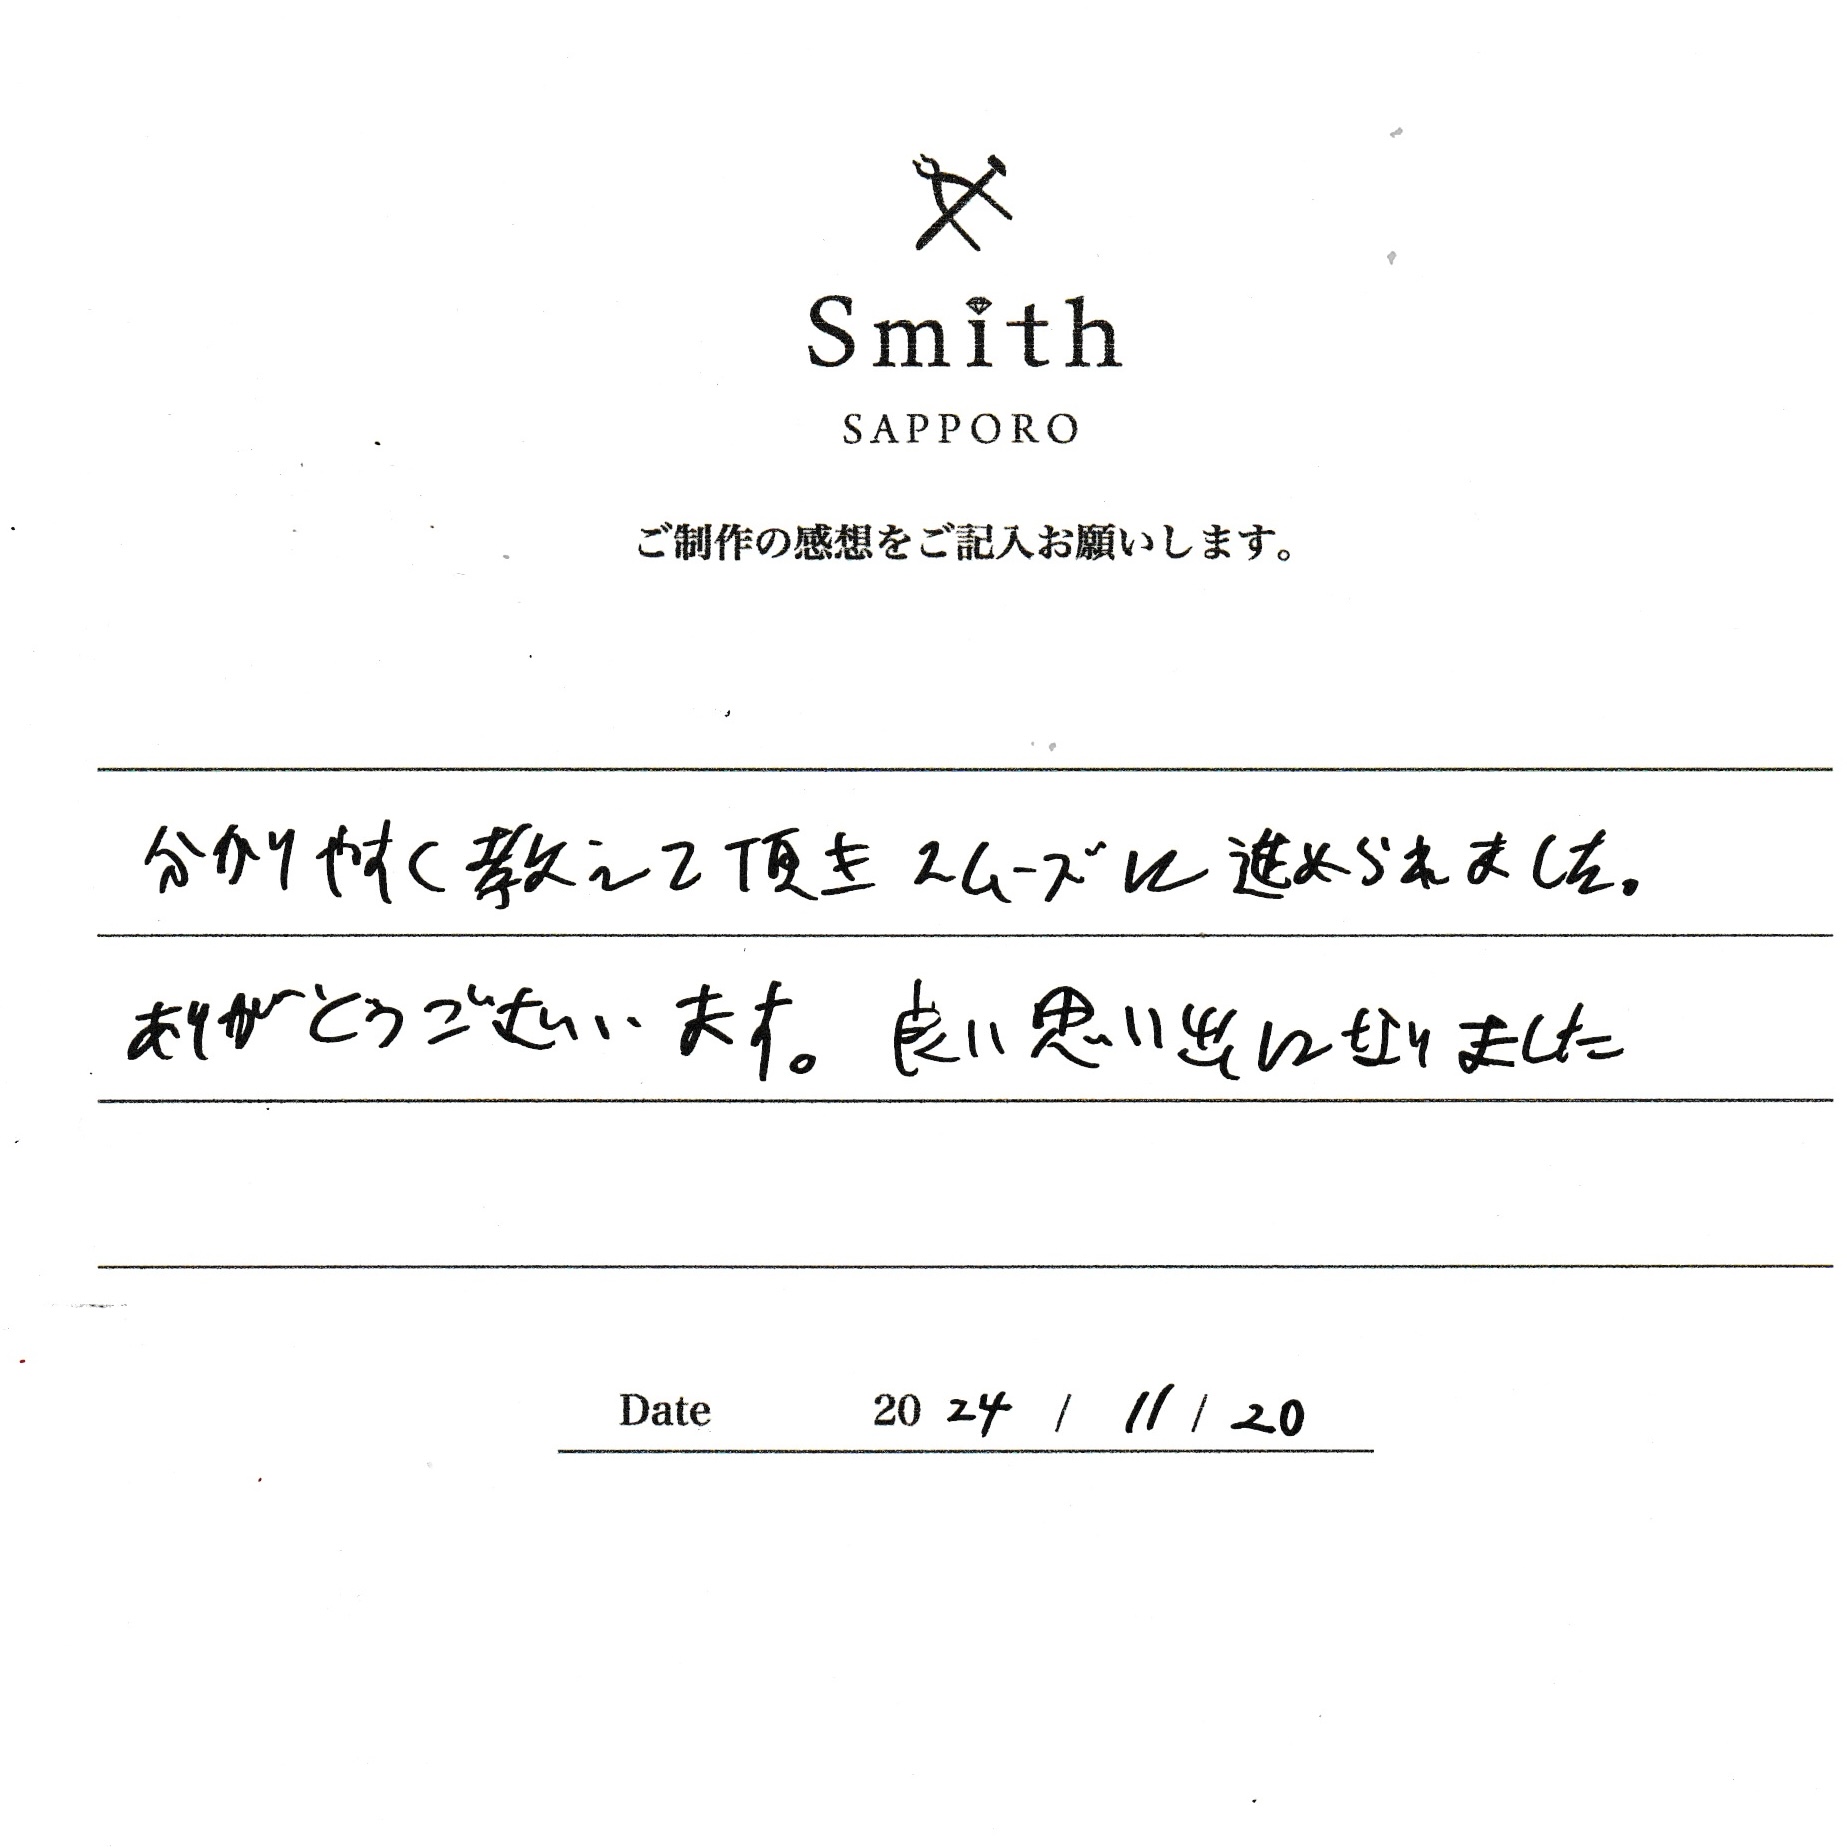 Smith
SAPPORO
ご制作の感想をご記入お願いします。
分かりやすく教えて頂きスムーズに進められました。
ありがとうございます。良い思い出になりました
Date 2024 / 11 / 20